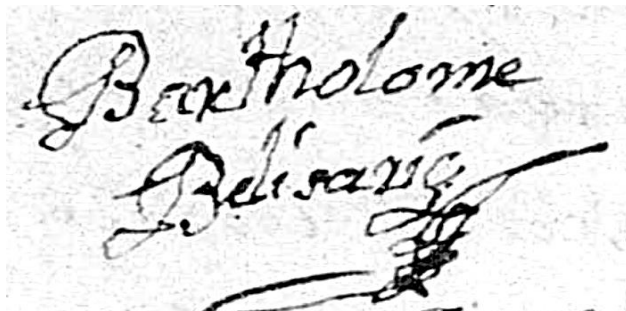 Bartholome
Belisario